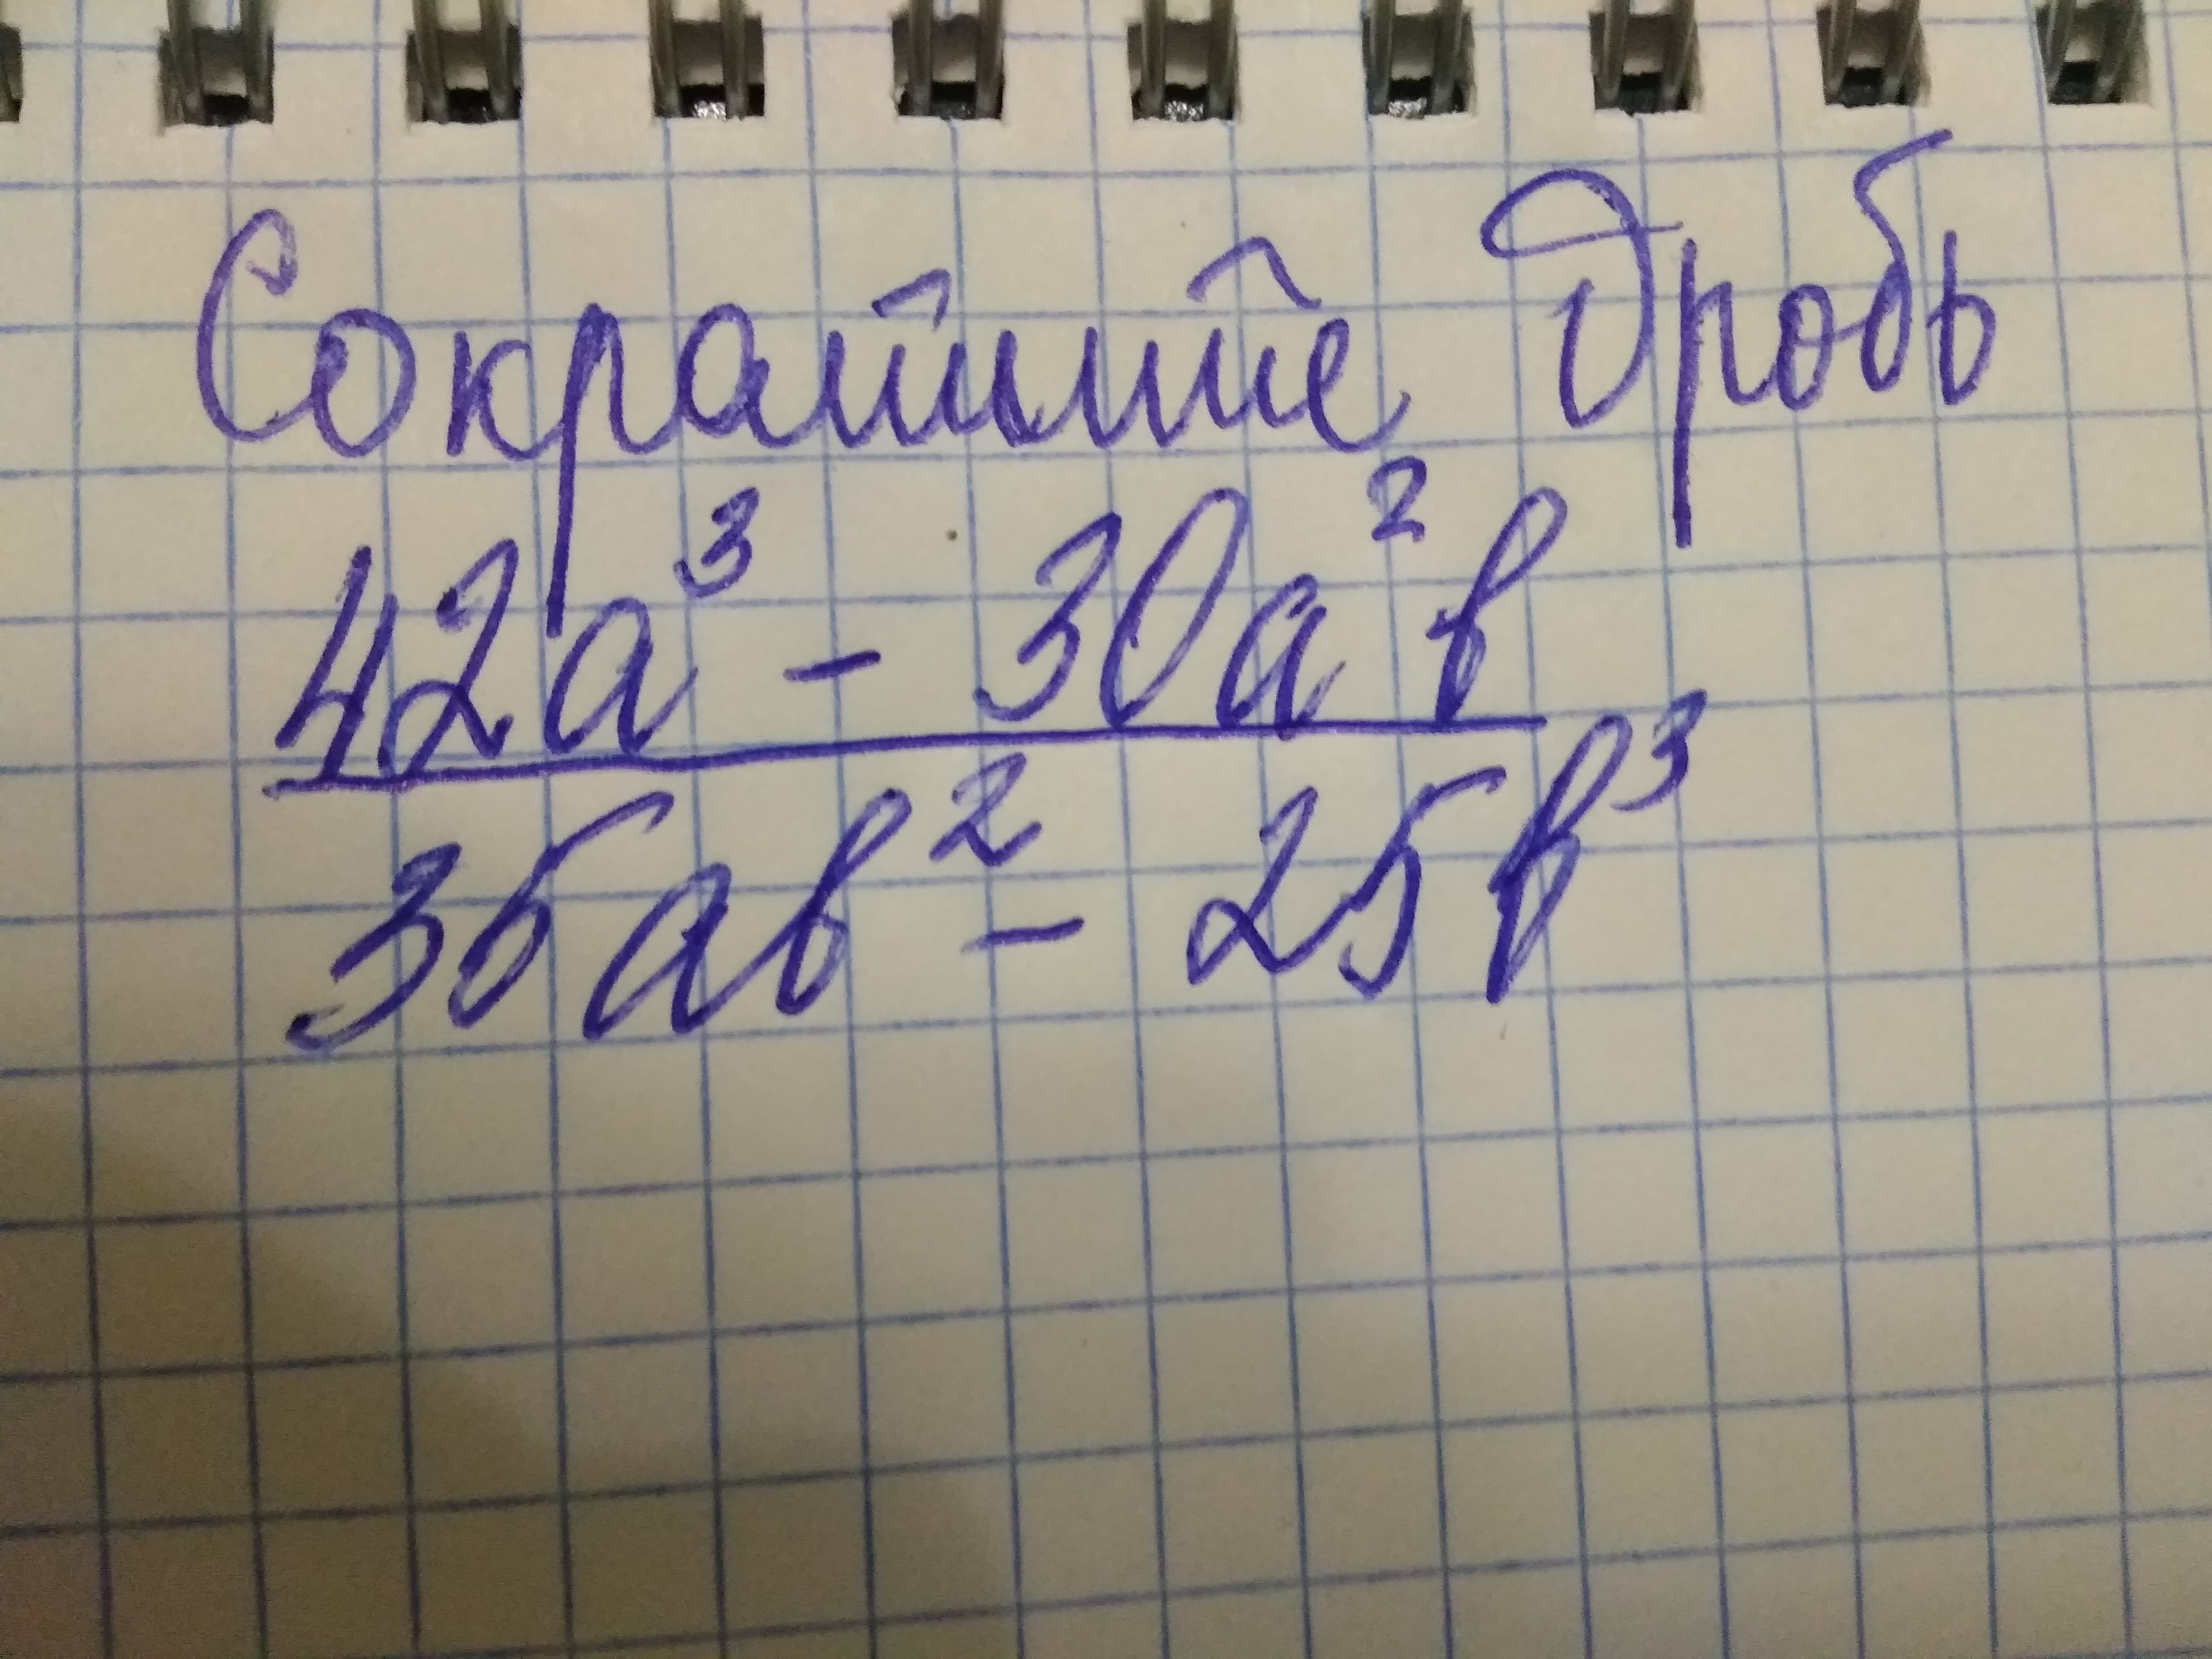 Сократите дробь
42а³ - 30а²в
35ав² - 25в³